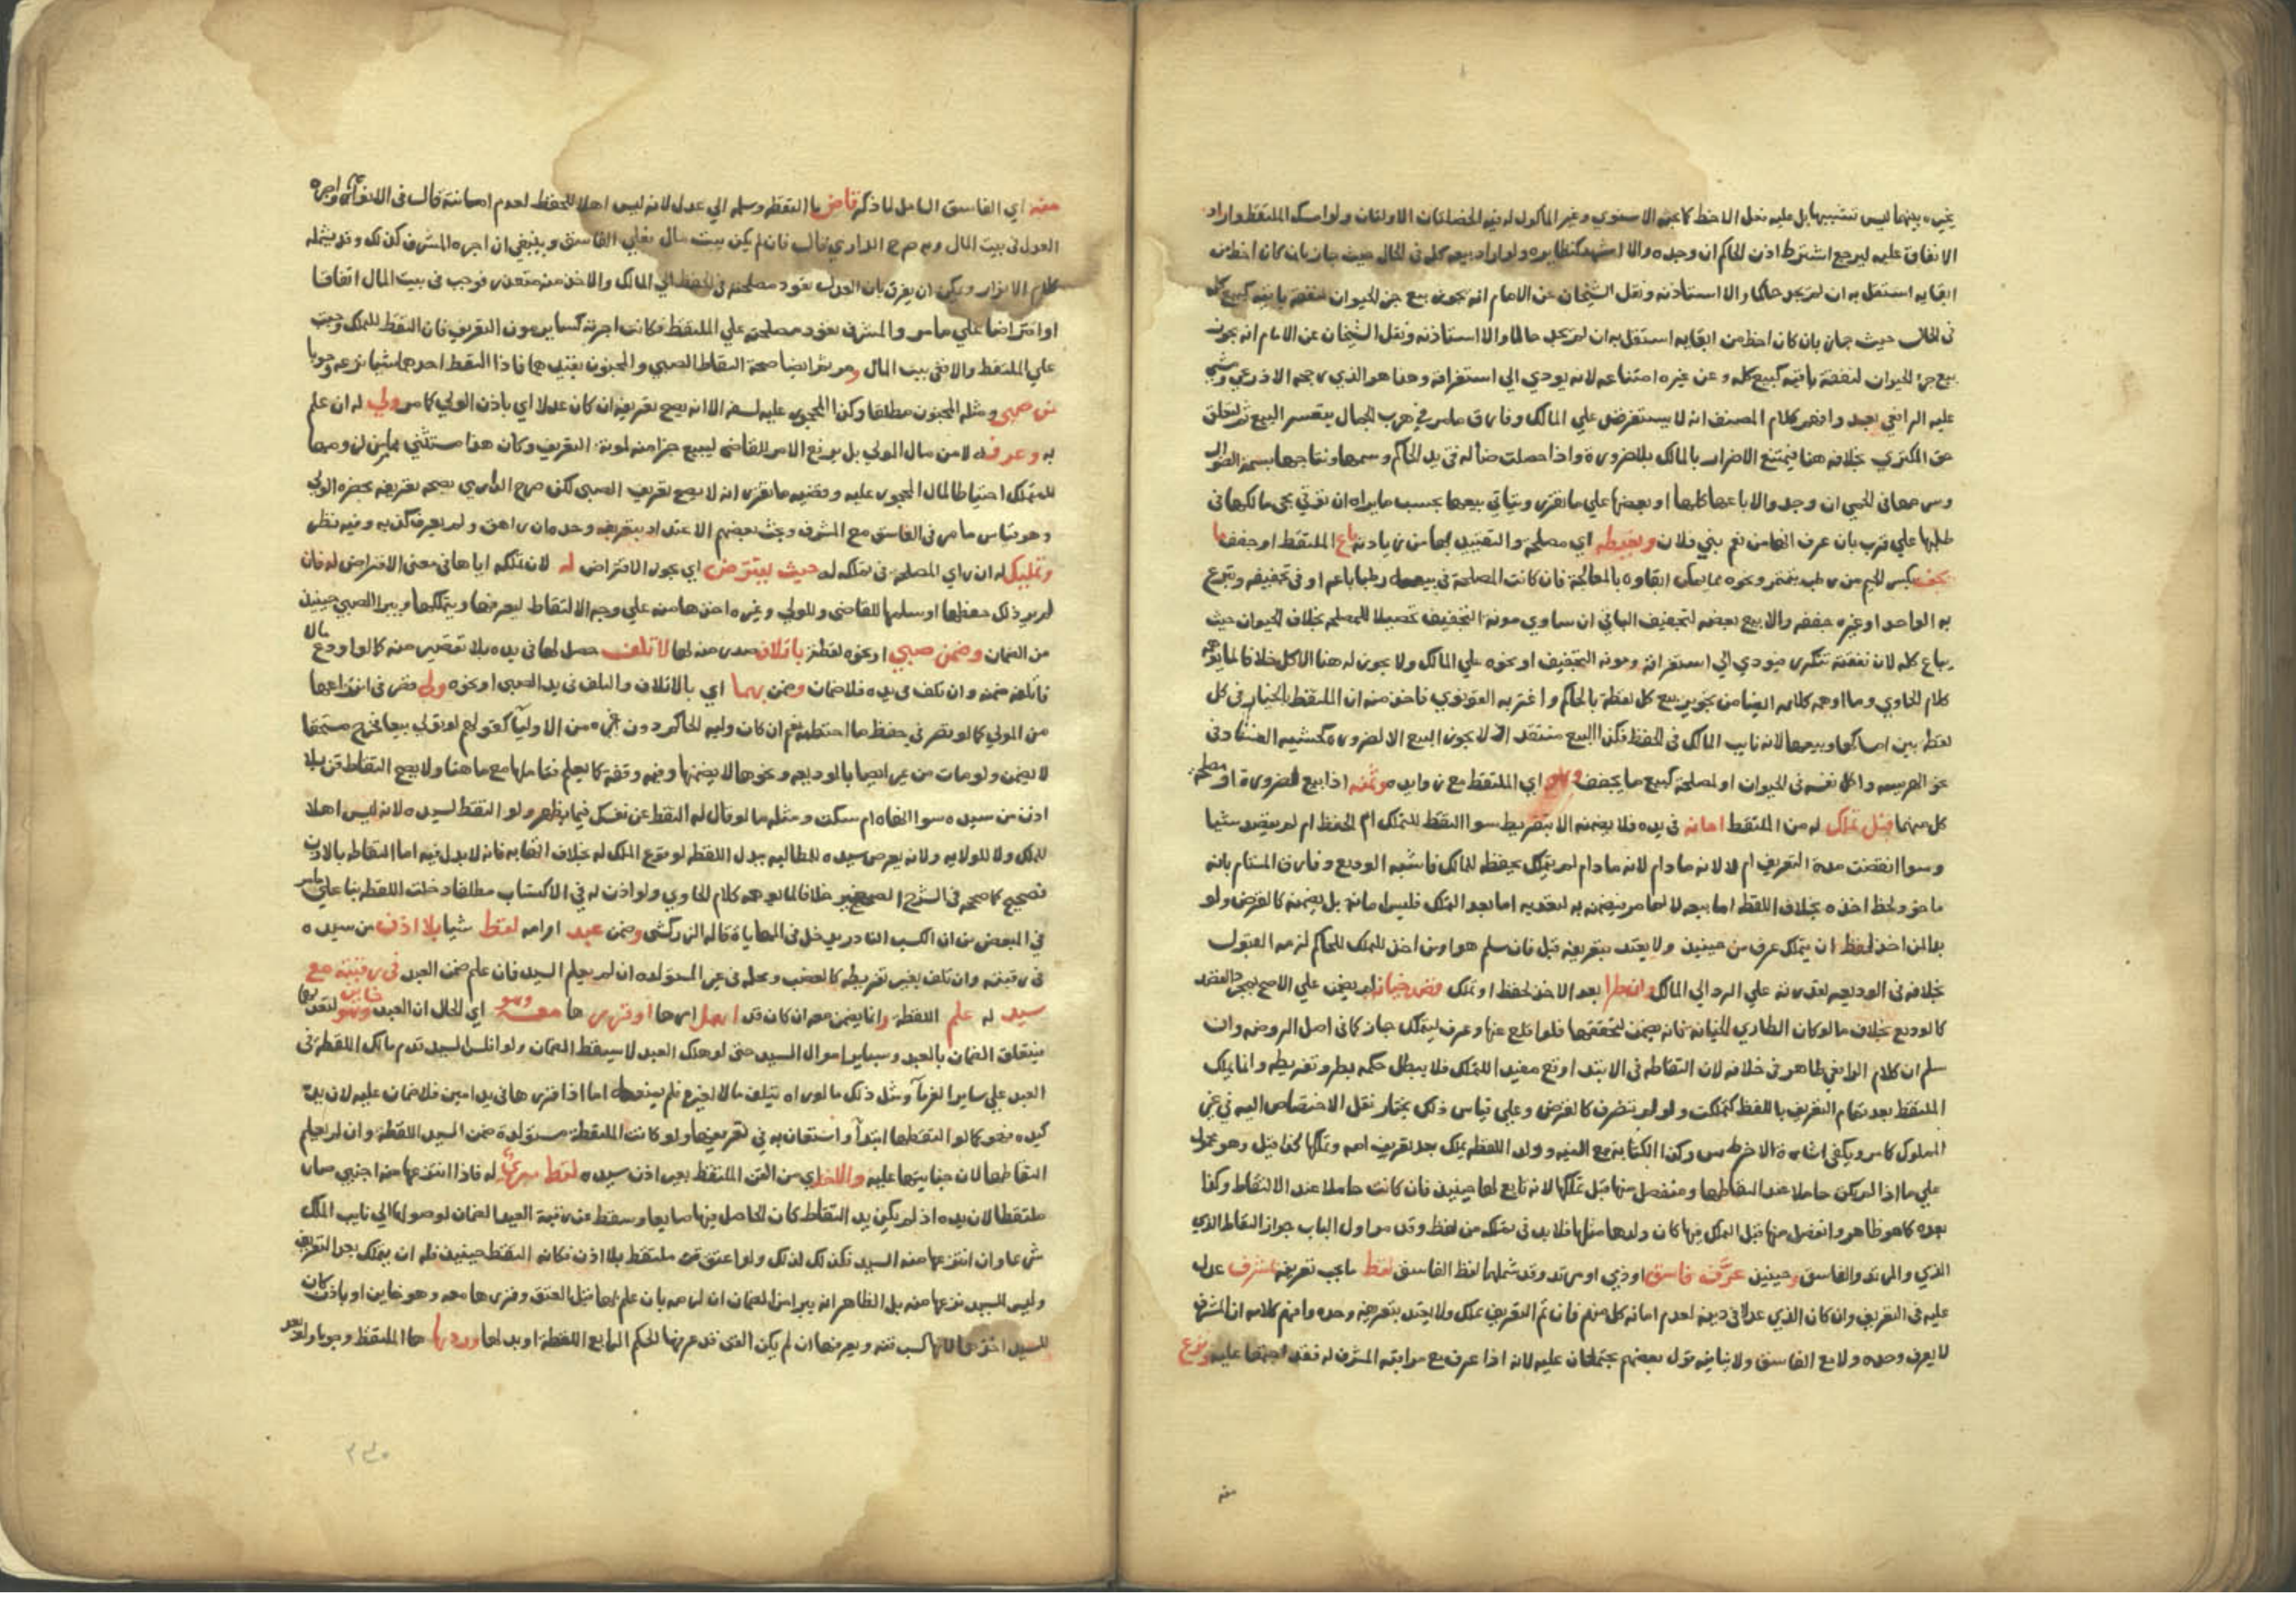 يخيره بينهما ليس تشبيها بل عليه فعل الاحظ كما بحثه الاسنوي وغير الماكول له فيه الخصلتان الاوليان ولو امسك الملتقط واراد
الانفاق عليه ليرجع اشترط اذن الحاكم ان وجده والا اشهد كنظايره ولو اراد بيعه كله في الحال حيث جاز بان كان احظ من
ابقايه استقل به ان لم يجد حاكما والا استاذنه ونقل الشيخان عن الامام انه يجوز بيع جزء الحيوان لنفقة باقيه كبيع كله
في الحال حيث جاز بان كان احظ من ابقايه استقل به ان لم يجد حاكما والا استاذنه ونقل الشيخان عن الامام انه يجوز
بيع جزء الحيوان لنفقة باقيه كبيع كله وعن غيره امتناعه لانه يودي الى استغراقه وهذا هو الذي رجحه الاذرعي
عليه الرافعي بعيد وافهم كلام المصنف انه لا يستقرض علي المالك وفارق مامر في هرب الجمال بتعسر البيع ثم لتعلق
حق المكتري بخلافه هنا فيمتنع الاضرار بالمالك بلا ضرورة واذا حصلت ضالة في يد الحاكم وسمها ونتاجها بسمة الضوال
وسرحها في الحمي ان وجد والا باعها كلها او بعضها علي ما تقرر ويتاني ببيعها بحسب ما يراه ان توقع مجي مالكها في
طلبها علي قرب بان عرف انها من نعم بني فلان وبغبطة اي مصلحة والتقييد بها من زيادته باع الملتقط او جفف ما
يجف بكسر الجيم من رطب يتتمر ونحوه مما يمكن ابقاوه بالمعالجة فان كانت المصلحة في بيعه رطبا باعه او في تجفيفه وتبرع
به الواحد او غيره جففه والا بيع بعضه لتجفيف الباقي ان ساوي مونة التجفيف تحصيلا للمصلحة بخلاف الحيوان حيث
يباع كله لان نفقته تتكرر فيودي الي استغراقه ومونة التجفيف او نحوه علي المالك ولا يجوز له هنا الاكل خلافا لما يوهمه
كلام الحاوي وما اوهمه كلامه ايضا من تجويز بيع كل لقطة بالحاكم واغتر به القونوي فاخذ منه ان الملتقط بالخيار في كل
لقطة بين امساكها وبيعها لانه نايب المالك في الحفظ فكذا البيع منتقد اذ لا يجوز البيع الا لضرورة كخشية الفساد في
نحو الهريسة واكل نفسه في الحيوان او لمصلحة كبيع ما يجفف وهو اي الملتقط مع زوايده وثمنه اذا بيع لضرورة او مصلحة
كل منهما قبل تملك له من الملتقط امانة في يده فلا يضمنه الا بتفريط سوا التقط للتملك ام للحفظ ام لم يقصد شيا
وسوا انقضت مدة التعريف ام لا لانه ما دام لانه مادام لم يتملك يحفظه للمالك فاشبه الوديع وفارق المستام بانه
ماخوذ لحظ اخذه بخلاف اللقطة اما بدلها مر فيضمن به لتعديه اما بعد التملك فليس امانة بل يضمنه كالقرض ولو
بدا لمن اخذ لحفظ ان يتملك عرف من حينيذ ولا يعتد بتعريفه قبل فان سلم هو او من اخذ للتملك للحاكم لزمه القبول
بخلافه في الوديعة لقدرته علي الرد الي المالك وان طرا بعد الاخذ لحفظ او تملك قصد خيانة لم يضمن علي الاصح بمجرد القصد
كالوديع بخلاف ما لو كان الطاري الخيانة فانه يضمن لتحققها فلو اقلع عنها وعرف ليتملك جاز كما في اصل الروضة وان
سلم ان كلام الرافعي ظاهر في خلافه لان التقاطه في الابتدا وقع مفيدا للتملك فلا يبطل حكمه بطرو تفريطه وانما يملك
الملتقط بعد تمام التعريف باللفظ كتملكت ولو لم يتصرف كالقرض وعلي قياس ذلك يختار نقل الاختصاص اليه في غير
المملوك كما مر ويكفي اشارة الاخرس وكذا الكتابة مع النية وولد اللقطة يملك بعد تعريف امه وتملكها كذا قيل وهو محمول
علي ما اذا لم يكن حاملا عند التقاطها ومنفصل منها قبل تملكها لانه تابع لها حينيذ فان كانت حاملا عند الالتقاط وكذا
بعده كما هو ظاهر وانفصل منها قبل التملك فيها كان ولدها مثلها فلا بد في تملكه من لفظ وقد مر اول الباب جواز التقاط الذمي
الذي والمرتد والفاسق وحينيذ عرف فاسق او ذمي او مرتد وقد شملها لفظ الفاسق لقط ما يجب تعريفه بمشرف عدل
عليه في التعريف وان كان الذمي عدلا في دينه لعدم امانة كل منهم فان تم التعريف تملك ولا يعتد بتعريفه وحده وافهم كلامه ان المشرف
لا يعرف وحده ولا مع الفاسق ولا ينافيه قول بعضهم يجتمعان عليه لانه اذا عرف مع مراقبة المشرف له فقد اجتمعا عليه ونزع
منه
منه اي الفاسق الشامل لما ذكر قاض ما التقطه وسلمه الي عدل لانه ليس اهلا للحفظ لعدم امانته قال في الانوار واجرة
العدل في بيت المال وبه صرح الدارمي قال فان لم يكن بيت مال فعلي الفاسق وينبغي ان اجرة المشرف كذلك وقد يشمله
كلام الانوار ويمكن ان يفرق بان العدل تعود مصلحته في الحفظ الي المالك والاخذ منه متعذر فوجب في بيت المال اتفاقا
او اقتراضا علي مامر والمشرف تعود مصلحته علي الملتقط فكانت اجرته كساير مون التعريف فان التقط للتملك وجبت
علي الملتقط والا ففي بيت المال ومر ثم ايضا صحة التقاط الصبي والمجنون بقيدهما فاذا التقط احدهما شيا نزعه وجوبا
من صبي ومثله المجنون مطلقا وكذا المحجور عليه لسفه الا انه يصح تعريفه ان كان عدلا اي باذن الولي كما مر ولي له ان علم
به وعرفه لا من مال المولي بل يرفع الامر للقاضي ليبيع جزا منه لمونة التعريف وكان هذا مستثني
للتملك احتياطا لمال المحجور عليه وقضية ما تقرر انه لا يصح تعريف الصبي لكن صرح الدارمي بصحة تعريفه بحضرة الولي
وهو قياس ما مر في الفاسق مع المشرف وبحث بعضهم الاعتداد بتعريفه وحده ان راهق ولم يعرف كذبه وفيه نظر
وتمليك له ان راي المصلحة في تملكه له حيث يقترض اي يجوز الاقتراض له لان تملكه اياها في معني الاقتراض له فان
لم ير ذلك حفظها او سلمها للقاضي وللولي وغيره اخذها منه علي وجه الالتقاط ليعرفها ويتملكها ويبرا الصبي حينيذ
من الضمان وضمن صبي او نحوه لقطة باتلاف صدر منه لها لا تلف حصل لها في يده بلا تقصير منه كما لو اودع مالا
فاتلفه ضمنه وان تلف في يده فلا ضمان وضمن بهما اي بالاتلاف والتلف في يد الصبي او نحوه ولي قصر في انتزاعها
من المولي كما لو قصر في حفظ ما احتطبه نعم ان كان وليه الحاكم دون غيره من الاوليا كقولهم لو تولي بيعا فخرج مستحقا
لا يضمن ولو مات من غير ايصا بالوديعة ونحوها لا يضمنها وفيه وقفة كما يعلم بتاملها مع ما هنا ولا يصح التقاط قن بلا
اذن من سيده سوا انهاه ام سكت ومثله ما لو قال له التقط عن نفسك فيما يظهر ولو التقط لسيده لانه ليس اهلا
للملك ولا للولاية ولانه يعرض سيده للمطالبة ببدل اللقطة لوقوع الملك له بخلاف اتهابه فانه لا بدل فيه اما التقاطه بالاذن
فصحيح كما صححه في الشرح الصغير خلافا لما يوهمه كلام الحاوي ولو اذن له في الاكتساب مطلقا دخلت اللقطة بنا علي مامر
في المبعض من ان الكسب النادر يدخل في المهاياة قاله الزركشي وضمن عبد او امة لقط شيا بلا اذن من سيده
في رقبته وان تلف بغير تفريطه كالغصب ومحله في غير المستولدة ان لم يعلم السيد فان علم ضمن العبد في رقبته مع
سيد له علم اللقطة وانما يضمن معه ان كان قد اهمل امرها او قررها معه وهو اي الحال ان العبد خاين لتعديهما
فيتعلق الضمان بالعبد وبساير اموال السيد حتى لو هلك العبد لا يسقط الضمان ولو افلس السيد قدم مالك اللقطة في
العبد علي ساير الغرما ومثل ذلك ما لو راه يتلف مالا لغيره فلم يمنعه اما اذا قررها في يد امين فلا ضمان عليه لان يده
كيده فهو كما لو التقطها ابتدا واستعان به في تعريفها ولو كانت الملتقطة مستولدة ضمن السيد اللقطة وان لم يعلم
التقاطها لان جنايتها عليه والاخذ اي من القن الملتقط بغير اذن سيده لقط له فاذا انتزعها منه اجنبي صار
ملتقطا لان يده اذ لم يكن يد التقاط كان الحاصل فيها ضايعا وسقط عن رقبة العبد الضمان لوصولها الي نايب المالك
شرعا وان انتزعها منه السيد فكذلك لذلك ولو اعتق قن ملتقط بلا اذن فكانه التقط حينيذ فله ان يتملك بعد التعريف
وليس للسيد نزعها منه بل الظاهر انه يبرا من الضمان ان لزمه بان علم بها قبل العتق وقررها معه وهو خاين او باذن كان
للسيد اخذها لانها كسب قنه ويعرفها ان لم يكن القن قد عرفها الحكم الرابع اللقطة او بدلها وردها الملتقط وجوبا